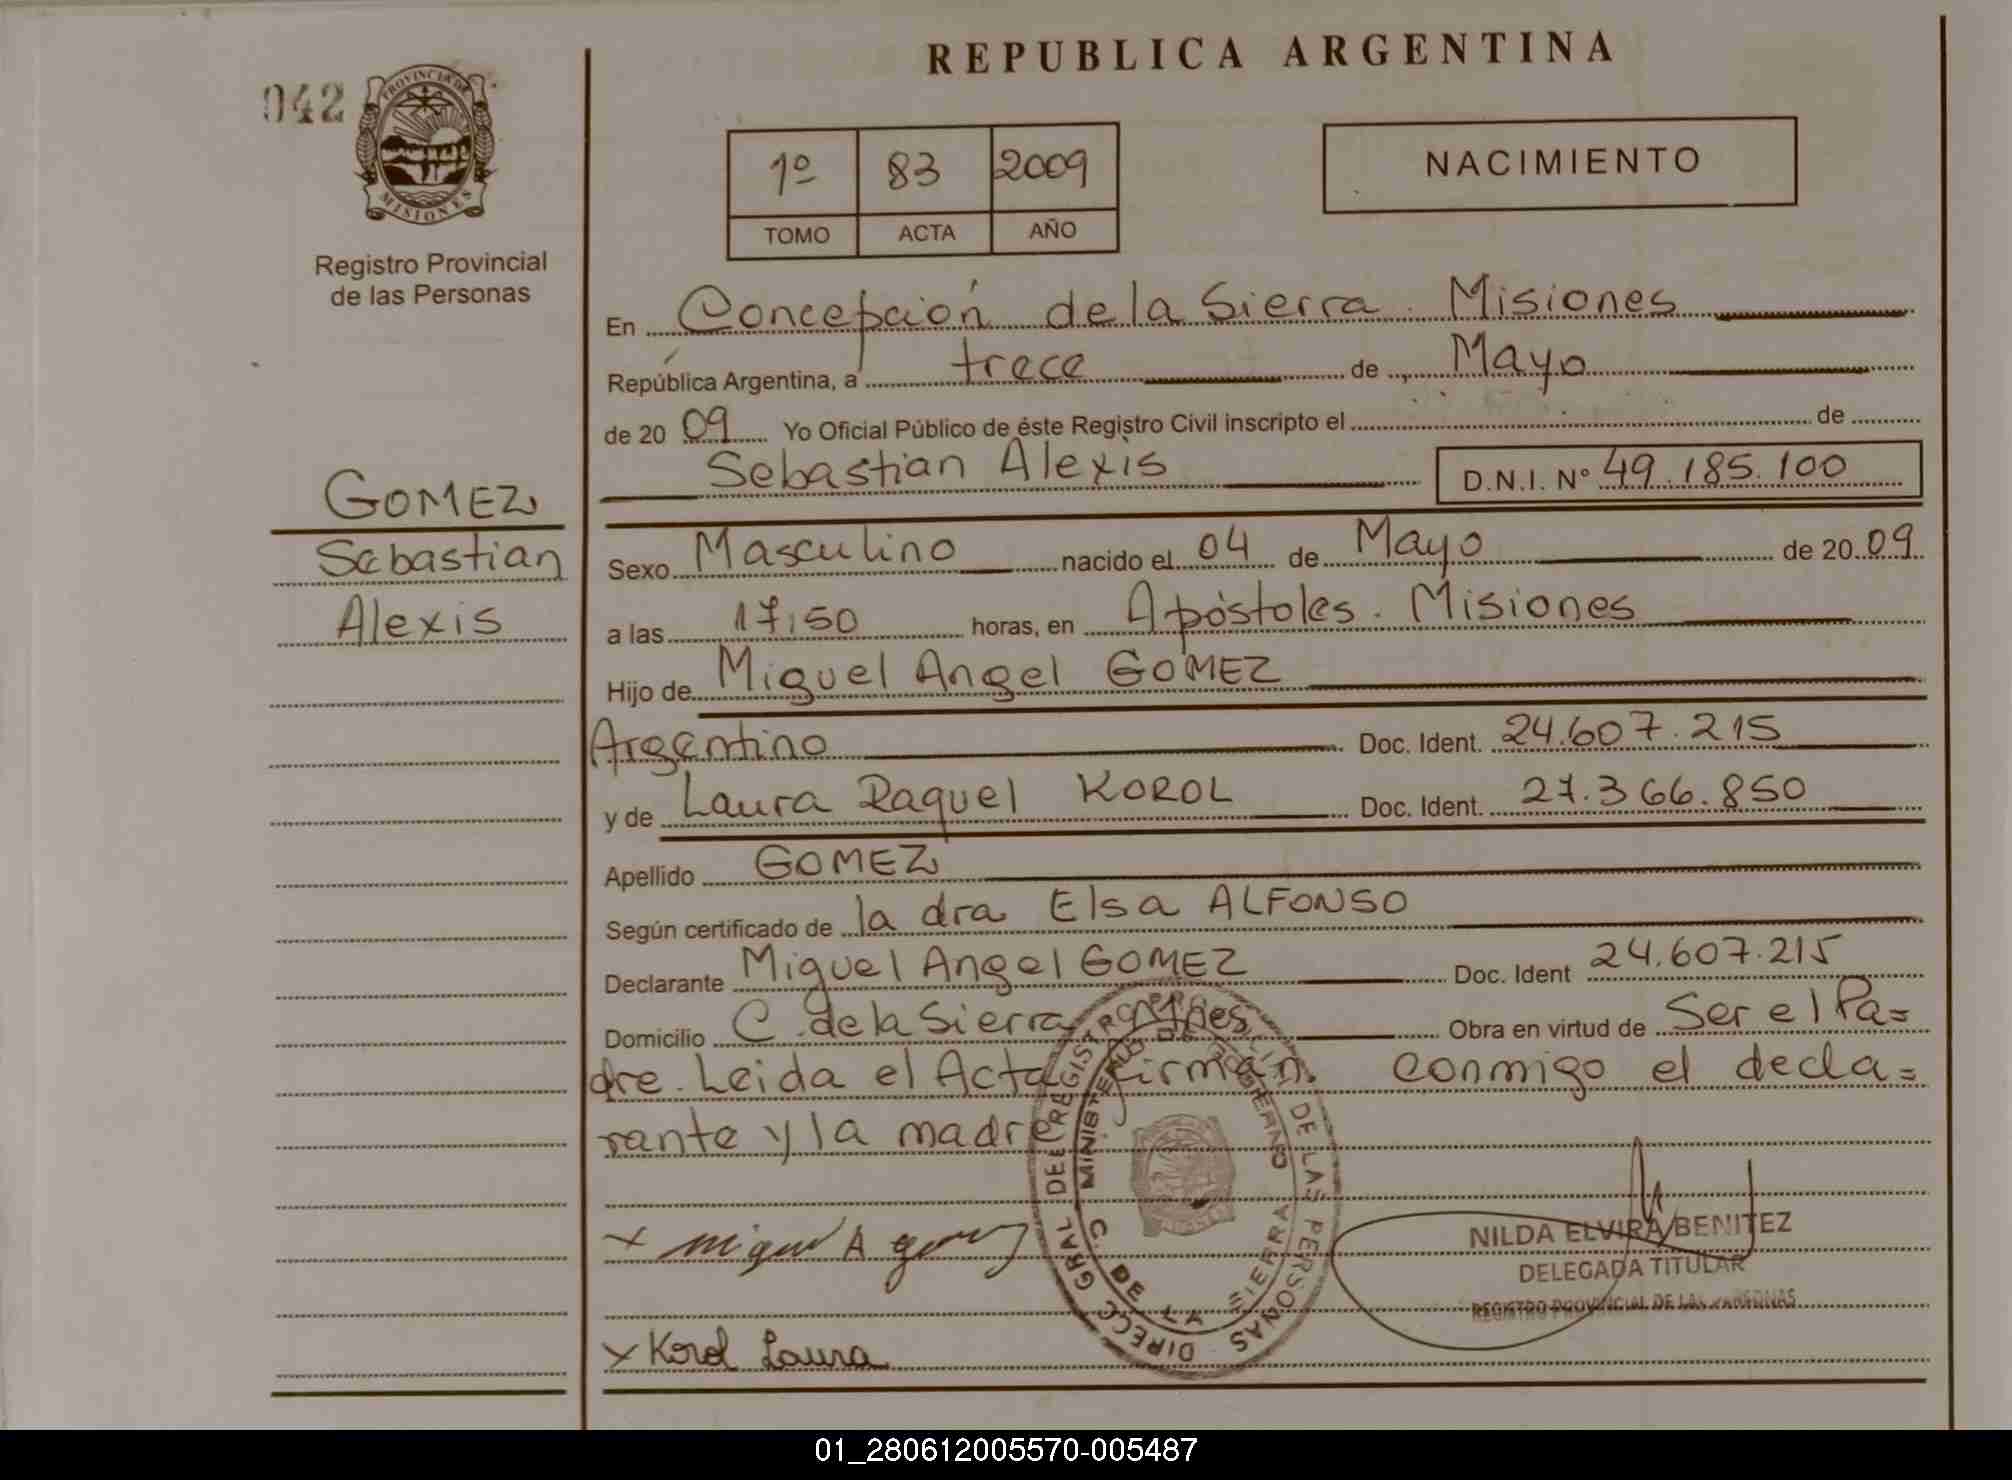 REPUBLICA ARGENTINA
042
PROVINCIA DE
MISIONES
Registro Provincial
de las Personas
1º 83 2009
TOMO ACTA AÑO
NACIMIENTO
En Concepción de la Sierra. Misiones
República Argentina, a trece de Mayo
de 20 09 Yo Oficial Público de éste Registro Civil inscripto el de
Sebastian Alexis D.N.I. Nº 49.185.100
GOMEZ
Sebastian
Alexis
Sexo Masculino nacido el 04 de Mayo de 20 09
a las 17,50 horas, en Apóstoles. Misiones
Hijo de Miguel Angel GOMEZ
Argentino Doc. Ident. 24.607.215
y de Laura Raquel KOROL Doc. Ident. 27.366.850
Apellido GOMEZ
Según certificado de la dra Elsa ALFONSO
Declarante Miguel Angel GOMEZ Doc. Ident 24.607.215
Domicilio C. de la Sierra Mnes Obra en virtud de Ser el Pa=
dre. Leida el Acta firman conmigo el decla=
rante y la madre
x Miguel A Gomez
x Korol Laura
DIRECC GRAL DEL REGISTRO DE LAS PERSONAS
MINISTERIO DE GOBIERNO
C. DE LA SIERRA
NILDA ELVIRA BENITEZ
DELEGADA TITULAR
REGISTRO PROVINCIAL DE LAS PERSONAS
01_280612005570-005487